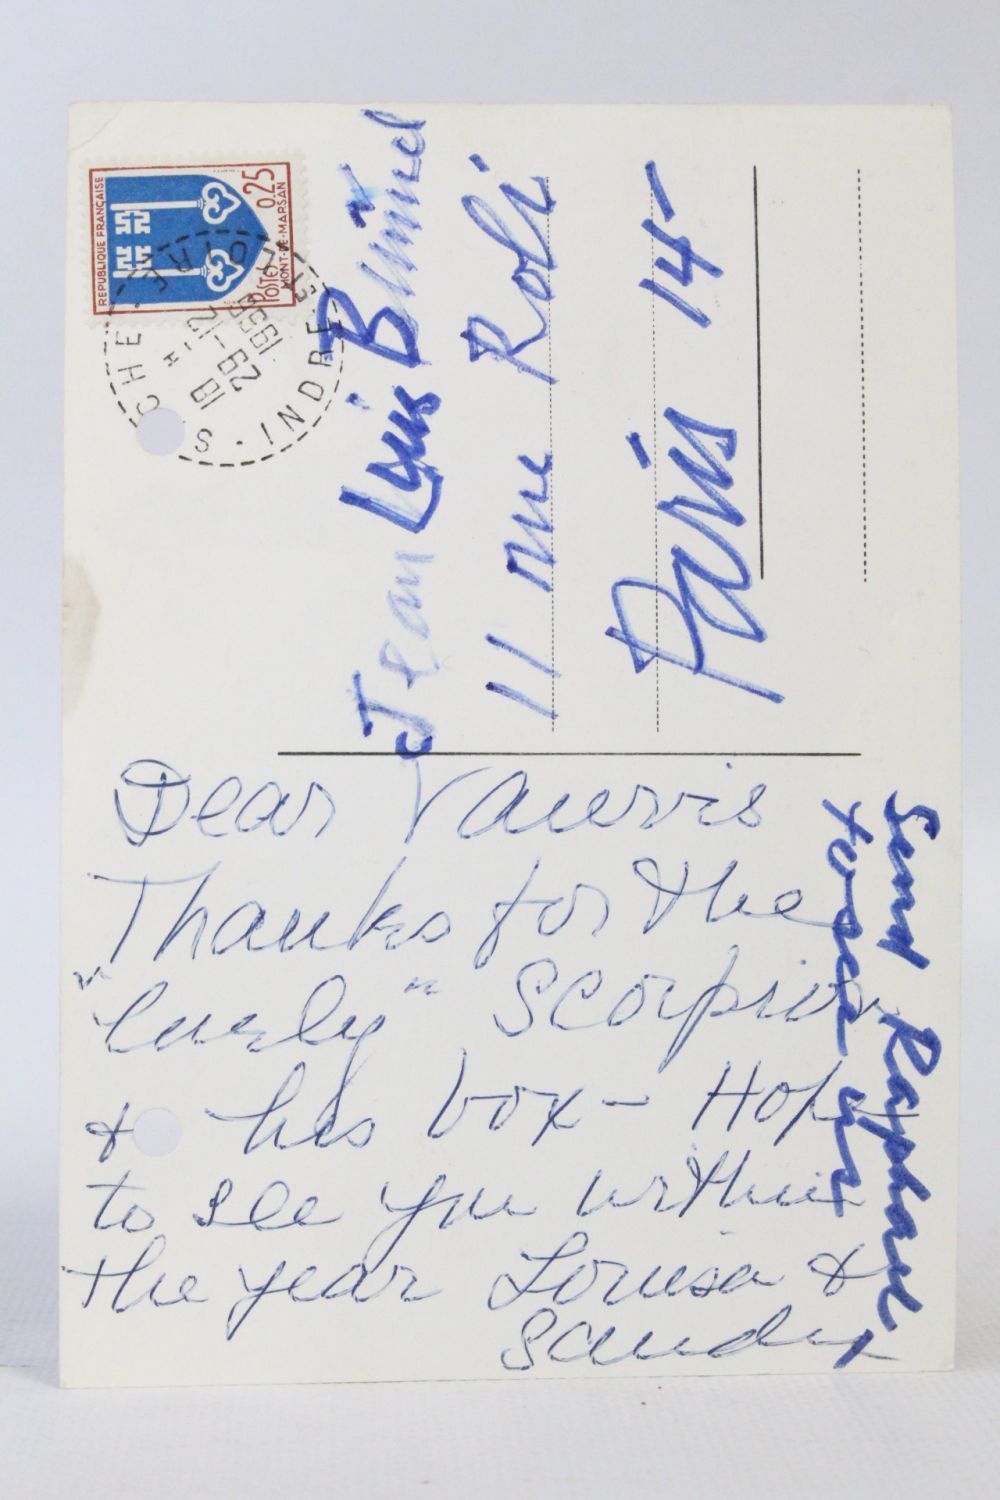 RÉPUBLIQUE FRANÇAISE
0.25
POSTES
MONT-DE-MARSAN
SACHE
INDRE
LOIRE
18 H
29-12
1966
Jean Luis
11 rue Roli
Paris 14
Dear
Thanks for the
"lively" Scorpion
& his box - Hope
to see you within
the year Louisa &
Sandy
Send Raphael
to see us